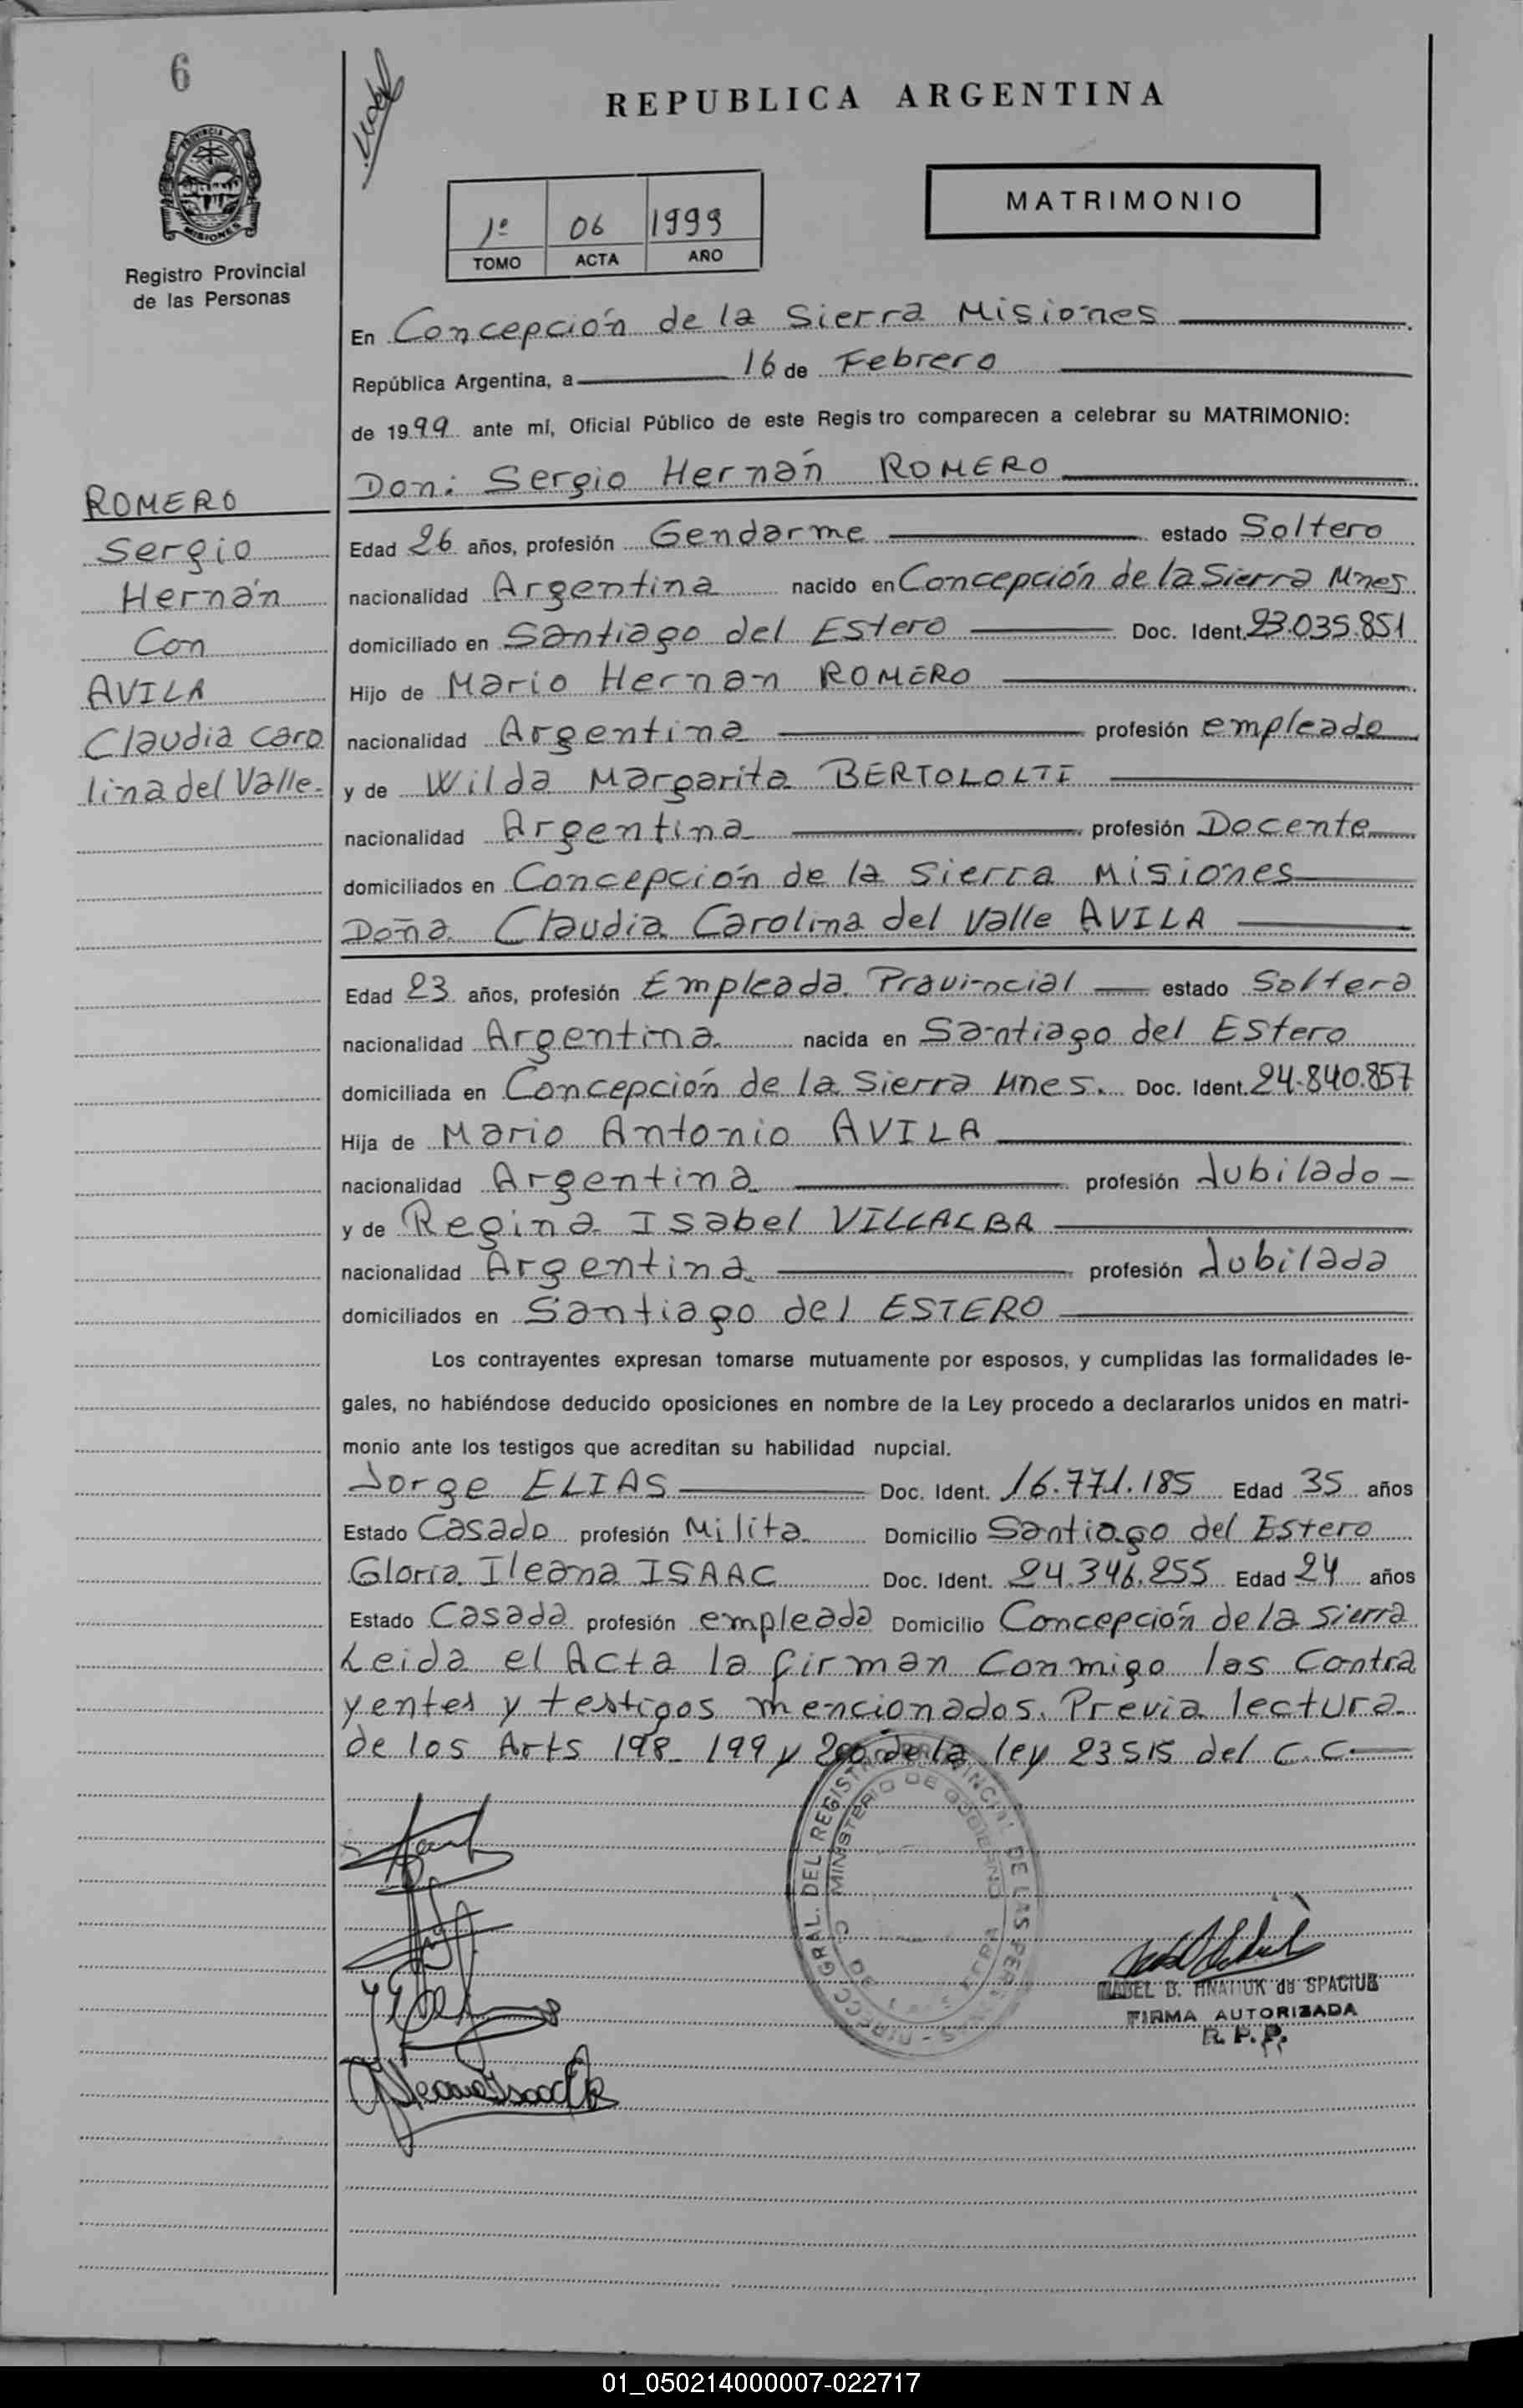 6
REPUBLICA ARGENTINA
PROVINCIA D
MISIONES
Registro Provincial
de las Personas
1º 06 1999
TOMO ACTA AÑO
MATRIMONIO
En Concepción de la Sierra Misiones
República Argentina, a 16 de Febrero
de 1999 ante mí, Oficial Público de este Regis tro comparecen a celebrar su MATRIMONIO:
Don: Sergio Hernán ROMERO
ROMERO
Sergio
Hernán
Con
AVILA
Claudia Caro
lina del Valle.
Edad 26 años, profesión Gendarme estado Soltero
nacionalidad Argentina nacido en Concepción de la Sierra Mnes
domiciliado en Santiago del Estero Doc. Ident. 23.035.851
Hijo de Mario Hernan ROMERO
nacionalidad Argentina profesión empleado
y de Wilda Margarita BERTOLOLTI
nacionalidad Argentina profesión Docente
domiciliados en Concepción de la Sierra Misiones
Doña Claudia Carolina del Valle AVILA
Edad 23 años, profesión Empleada Provincial estado Soltera
nacionalidad Argentina nacida en Santiago del Estero
domiciliada en Concepción de la Sierra Mnes. Doc. Ident. 24.840.857
Hija de Mario Antonio AVILA
nacionalidad Argentina profesión Jubilado
y de Regina Isabel VILLALBA
nacionalidad Argentina profesión Jubilada
domiciliados en Santiago del ESTERO
Los contrayentes expresan tomarse mutuamente por esposos, y cumplidas las formalidades le-
gales, no habiéndose deducido oposiciones en nombre de la Ley procedo a declararlos unidos en matri-
monio ante los testigos que acreditan su habilidad nupcial.
Jorge ELIAS Doc. Ident. 16.771.185 Edad 35 años
Estado Casado profesión Milita Domicilio Santiago del Estero
Gloria Ileana ISAAC Doc. Ident. 24.346.255 Edad 24 años
Estado Casada profesión empleada Domicilio Concepción de la Sierra
Leida el Acta la firman conmigo los Contra
yentes y testigos mencionados. Previa lectura
de los Arts 198- 199 y 200 de la ley 23515 del C.C.
GRAL. DEL REGISTRO PROVINCIAL DE LAS PER
MINISTERIO DE GOBIERNO
MABEL B. HNATIUK de SPACIUK
FIRMA AUTORIZADA
R. P. P.
01_050214000007-022717